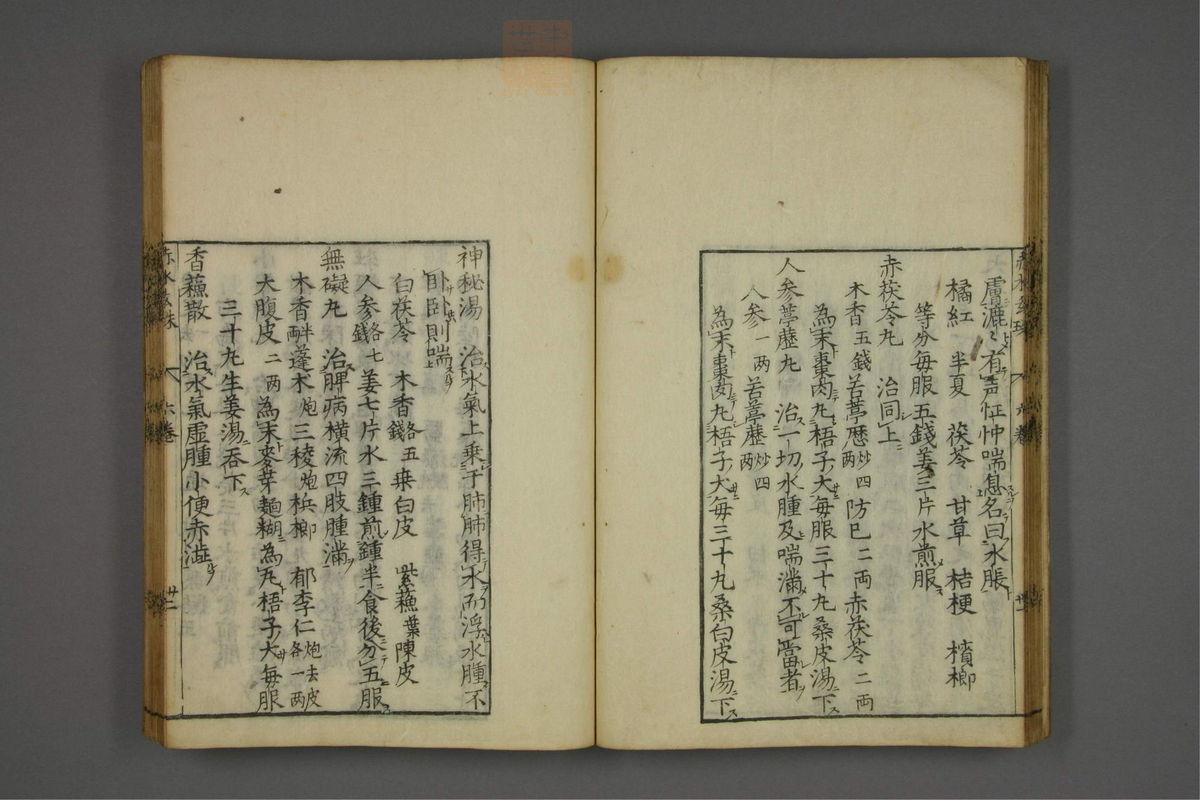 膚漉〻有声怔忡喘息名曰水脹
橘紅 半夏 茯苓 甘草 桔梗 檳榔
等分毎服五錢姜三片水煎服
赤茯苓丸 治同上
木香五錢 苦葶歴炒四両 防已二両赤茯苓二両
為末棗肉丸梧子大毎服三十丸桑皮湯下
人参葶歴丸 治一切水腫及喘満不可當者
人参一両 苦葶歴炒四両
為末棗肉丸梧子大毎三十丸桑白皮湯下
神秘湯 治水氣上乗于肺肺得水而浮水腫不
臥臥則喘
白茯苓 木香各五錢 桒白皮 紫蘓葉陳皮
人参各七錢 姜七片水三鍾煎鍾半食後分五服
無礙丸 治脾病横流四肢腫満
木香半両蓬术炮三稜炮梹榔 郁李仁炮去皮各一両
大腹皮二两 為末麥芽麺糊為丸梧子大毎服
三十丸生姜湯呑下
香蘓散 治水氣虚腫小便赤澁
六巻